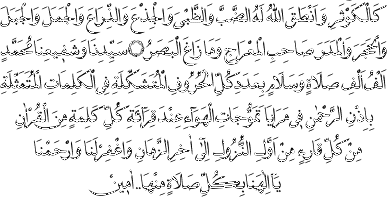 كَالْكَوْثَرِ وَانْطَقَ اللّٰهُ لَهُ الضَّبَّ وَالظَّبْيَ وَالْجِذْعَ وَالذِّرَاعَ وَالْجَمَلَ وَالْجَبَلَ
وَالْحَجَرَ وَالْمَدَرَ صَاحِبِ الْمِعْرَاجِ وَمَا زَاغَ الْبَصَرُ سَيِّدِنَا وَشَفِيعِنَا مُحَمَّدٍ
اَلْفُ اَلْفِ صَلَاةٍ وَسَلَامٍ بِعَدَدِ كُلِّ الْحُرُوفِ الْمُتَشَكِّلَةِ فِي الْكَلِمَاتِ الْمُتَمَثِّلَةِ
بِاِذْنِ الرَّحْمٰنِ فِي مَرَايَا تَمَوُّجَاتِ الْهَوَاءِ عِنْدَ قِرَائَةِ كُلِّ كَلِمَةٍ مِنَ الْقُرْاٰنِ
مِنْ كُلِّ قَارِئٍ مِنْ اَوَّلِ النُّزُولِ اِلٰى اٰخِرِ الزَّمَانِ وَاغْفِرْ لَنَا وَارْحَمْنَا
يَا اِلٰهَنَا بِكُلِّ صَلَاةٍ مِنْهَا.. اٰمِينَ